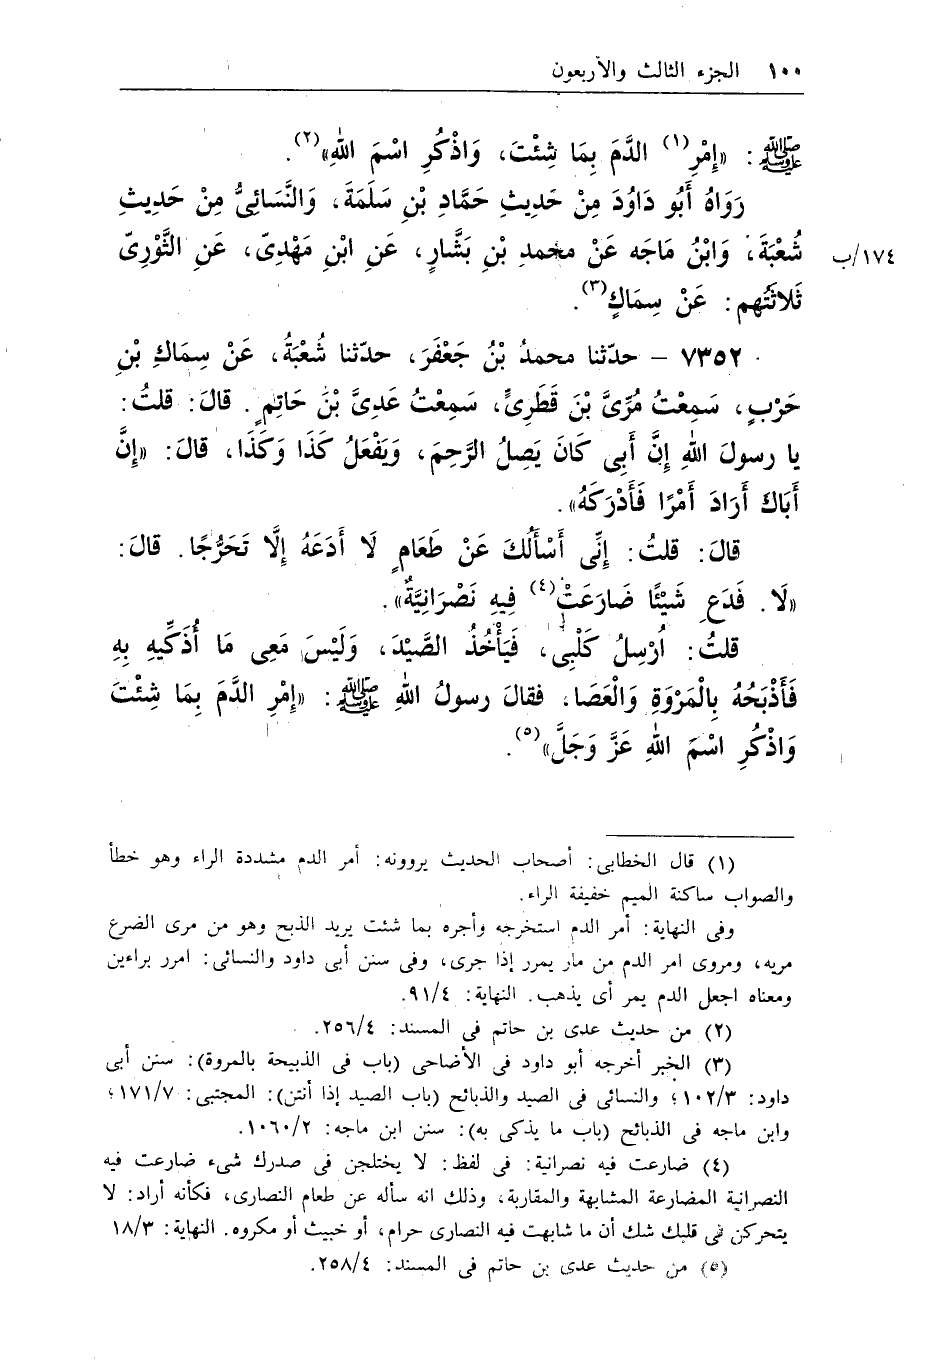 ١٠٠ الجزء الثالث والأربعون
ﷺ: «إِمْرِ(١) الدَّمَ بِمَا شِئْتَ، وَاذْكُرِ اسْمَ اللهِ»(٢).
رَوَاهُ أَبُو دَاوُدَ مِنْ حَدِيثِ حَمَّادِ بْنِ سَلَمَةَ، وَالنَّسَائِىُّ مِنْ حَدِيثِ
شُعْبَةَ، وَابْنُ مَاجه عَنْ محمدِ بْنِ بَشَّارٍ، عَنِ ابْنِ مَهْدِىّ، عَنِ الثَّوْرِىّ
١٧٤/ب
ثَلاثَتُهم: عَنْ سِمَاكٍ(٣).
٧٣٥٢ – حدّثنا محمدُ بْنُ جَعْفَرَ، حدّثنا شُعْبَةُ، عَنْ سِمَاكِ بْنِ
حَرْبٍ، سَمِعْتُ مُرِّىَّ بْنَ قَطَرِىٍّ، سَمِعْتُ عَدِىَّ بْنَ حَاتِمٍ. قَالَ: قلتُ:
يا رسولَ اللهِ إِنَّ أَبِى كَانَ يَصِلُ الرَّحِمَ، وَيَفْعَلُ كَذَا وَكَذَا، قَالَ: «إِنَّ
أَبَاكَ أَرَادَ أَمْرًا فَأَدْرَكَهُ».
قَالَ: قلتُ: إِنِّى أَسْأَلُكَ عَنْ طَعَامٍ لَا أَدَعَهُ إِلَّا تَحَرُّجًا. قالَ:
«لَا. فَدَعِ شَيْئًا ضَارَعَتْ(٤) فِيهِ نَصْرَانِيَّةٌ».
قلتُ: اُرْسِلُ كَلْبِى، فَيَأْخُذُ الصَّيْدَ، وَلَيْسَ مَعِى مَا أُذَكِّيهِ بِهِ
فَأَذْبَحُهُ بِالْمَرْوَةِ وَالْعَصَا، فقالَ رسولُ اللهِ ﷺ: «إِمْرِ الدَّمَ بِمَا شِئْتَ
وَاذْكُرِ اسْمَ اللهِ عَزَّ وَجَلَّ»(٥).
(١) قال الخطابى: أصحاب الحديث يروونه: أمر الدم مشددة الراء وهو خطأ
والصواب ساكنة الميم خفيفة الراء.
وفى النهاية: أمر الدم استخرجه وأجره بما شئت يريد الذبح وهو من مرى الضرع
مريه، ومروى امر الدم من مار يمرر إذا جرى، وفى سنن أبى داود والنسائى: امرر براءين
ومعناه اجعل الدم يمر أى يذهب. النهاية: ٩١/٤.
(٢) من حديث عدى بن حاتم فى المسند: ٢٥٦/٤.
(٣) الخبر أخرجه أبو داود فى الأضاحى (باب فى الذبيحة بالمروة): سنن أبى
داود: ١٠٢/٣؛ والنسائى فى الصيد والذبائح (باب الصيد إذا أنتن): المجتبى: ١٧١/٧؛
وابن ماجه فى الذبائح (باب ما يذكى به): سنن ابن ماجه: ١٠٦٠/٢.
(٤) ضارعت فيه نصرانية: فى لفظ: لا يختلجن فى صدرك شىء ضارعت فيه
النصرانية المضارعة المشابهة والمقاربة، وذلك انه سأله عن طعام النصارى، فكأنه أراد: لا
يتحركن فى قلبك شك أن ما شابهت فيه النصارى حرام، أو خبيث أو مكروه. النهاية: ١٨/٣
(٥) من حديث عدى بن حاتم فى المسند: ٢٥٨/٤.